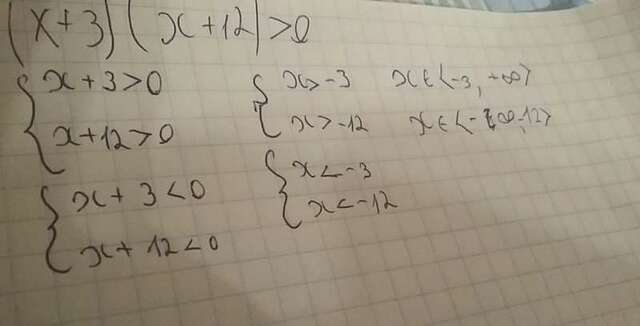 (x+3)(x+12)>0
{ x+3>0
x+12>0
{ x>-3 x∈<-3, +∞>
x>-12 x∈<-∞,-12>
{ x+3<0
x+12<0
{ x<-3
x<-12